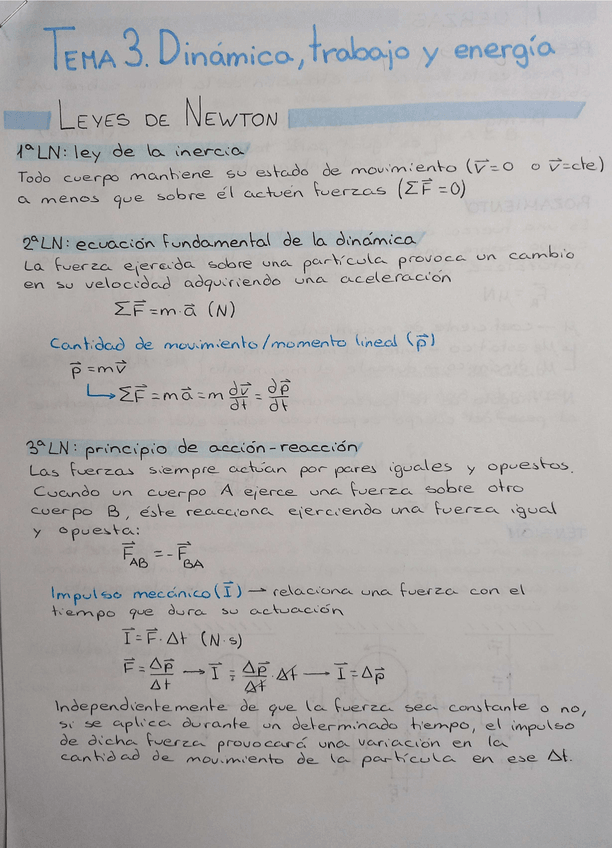 TEMA 3. Dinámica, trabajo y energía
LEYES DE NEWTON
1ª LN: ley de la inercia
Todo cuerpo mantiene su estado de movimiento (v⃗=0 o v⃗=cte)
a menos que sobre él actúen fuerzas (ΣF⃗=0)
2ª LN: ecuación fundamental de la dinámica
La fuerza ejercida sobre una partícula provoca un cambio
en su velocidad adquiriendo una aceleración
ΣF⃗=m·a⃗ (N)
Cantidad de movimiento/momento lineal (p⃗)
p⃗=mv⃗
↳ ΣF⃗=ma⃗=m ∂v⃗/∂t = ∂p⃗/∂t
3ª LN: principio de acción-reacción
Las fuerzas siempre actúan por pares iguales y opuestos.
Cuando un cuerpo A ejerce una fuerza sobre otro
cuerpo B, éste reacciona ejerciendo una fuerza igual
y opuesta:
F⃗AB=-F⃗BA
Impulso mecánico (I⃗) → relaciona una fuerza con el
tiempo que dura su actuación
I⃗=F⃗·Δt (N·s)
F⃗=Δp⃗/Δt → I⃗=Δp⃗/Δt·Δt → I⃗=Δp⃗
Independientemente de que la fuerza sea constante o no,
si se aplica durante un determinado tiempo, el impulso
de dicha fuerza provocará una variación en la
cantidad de movimiento de la partícula en ese Δt.